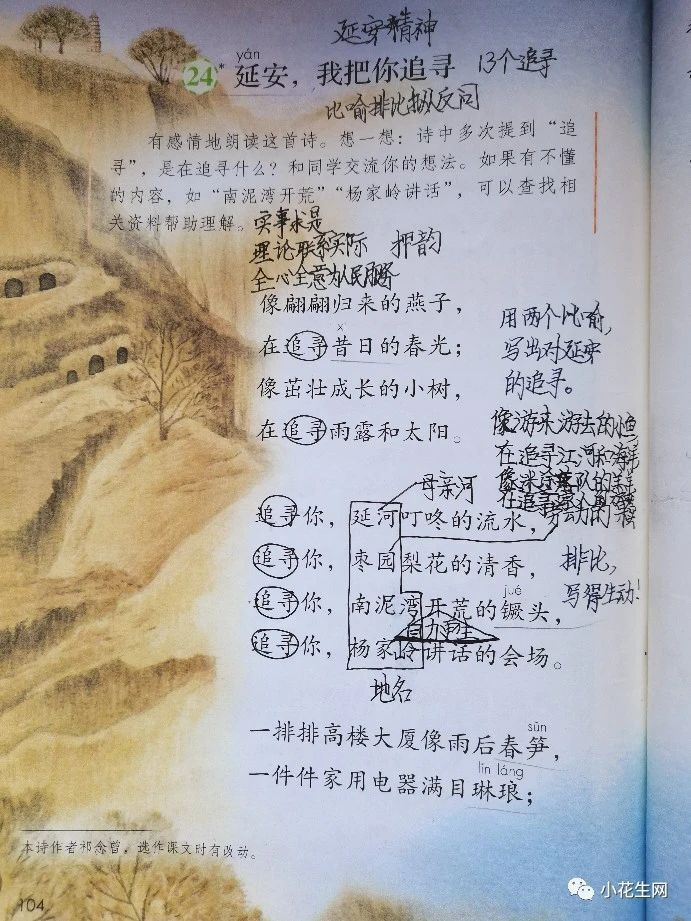 延安精神
yán
24* 延安，我把你追寻
13个追寻
比喻排比拟人反问
有感情地朗读这首诗。想一想：诗中多次提到“追
寻”，是在追寻什么？和同学交流你的想法。如果有不懂
的内容，如“南泥湾开荒”“杨家岭讲话”，可以查找相
关资料帮助理解。
实事求是
理论联系实际 押韵
全心全意为人民服务
像翩翩归来的燕子，
在追寻昔日的春光；
像茁壮成长的小树，
在追寻雨露和太阳。
用两个比喻，
写出对延安
的追寻。
像游来游去的鱼
在追寻江河和海洋
母亲河
追寻你，延河叮咚的流水，
追寻你，枣园梨花的清香，
jué
追寻你，南泥湾开荒的镢头，
自力更生
追寻你，杨家岭讲话的会场。
排比，
写得生动！
地名
sǔn
一排排高楼大厦像雨后春笋，
lín láng
一件件家用电器满目琳琅；
本诗作者祁念曾，选作课文时有改动。
104
小花生网